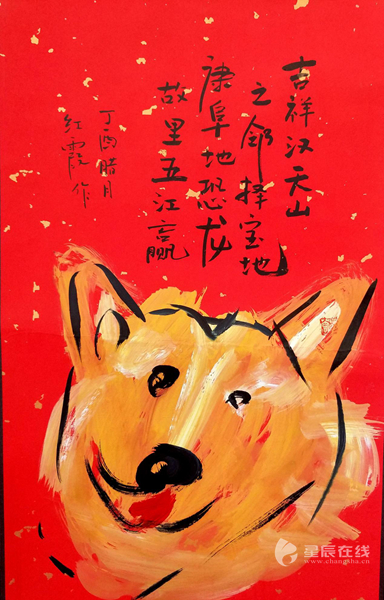 吉祥汉天山
之邻择宝地
康阜地恐龙
故里五江赢
丁酉腊月
红霞作
星辰在线
www.changsha.cn